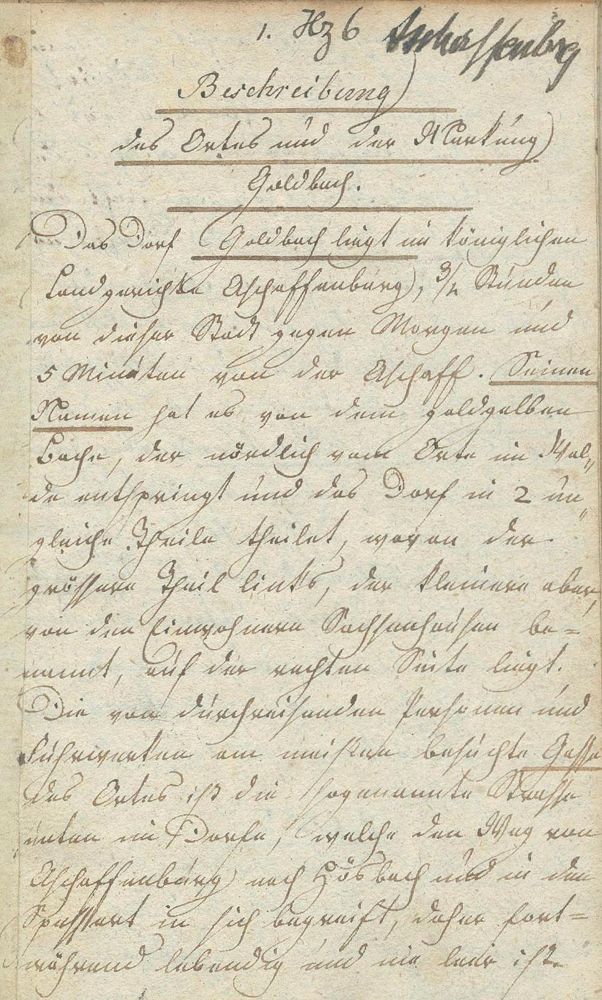 1. Hz 6 Aschaffenburg
Beschreibung
des Ortes und der Markung
Goldbach.
Das Dorf Goldbach liegt im königlichen
Landgerichte Aschaffenburg, 3/4 Stunden
von dieser Stadt gegen Morgen und
5 Minuten von der Aschaff. Seinen
Namen hat es von dem goldgelben
Bache, der nördlich vom Orte im Wal„
de entspringt und das Dorf in 2 un„
gleiche Theile theilet, wovon der
grössere Theil links, der kleinere aber,
von den Einwohnern Sachsenhausen be=
namt, auf der rechten Seite liegt.
Die von durchreisenden Personen und
Fuhrwerken am meisten besuchte Gasse
des Ortes ist die sogenannte Strasse
unten im Dorfe, welche den Weg von
Aschaffenburg nach Hösbach und in den
Spessart in sich begreift, daher fort=
während lebendig und nie leer ist.